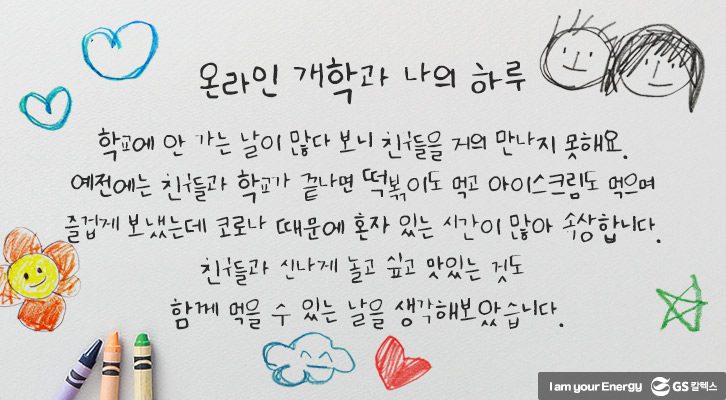 온라인 개학과 나의 하루
학교에 안 가는 날이 많다 보니 친구들을 거의 만나지 못해요.
예전에는 친구들과 학교가 끝나면 떡볶이도 먹고 아이스크림도 먹으며
즐겁게 보냈는데 코로나 때문에 혼자 있는 시간이 많아 속상합니다.
친구들과 신나게 놀고 싶고 맛있는 것도
함께 먹을 수 있는 날을 생각해보았습니다.
I am your Energy GS칼텍스